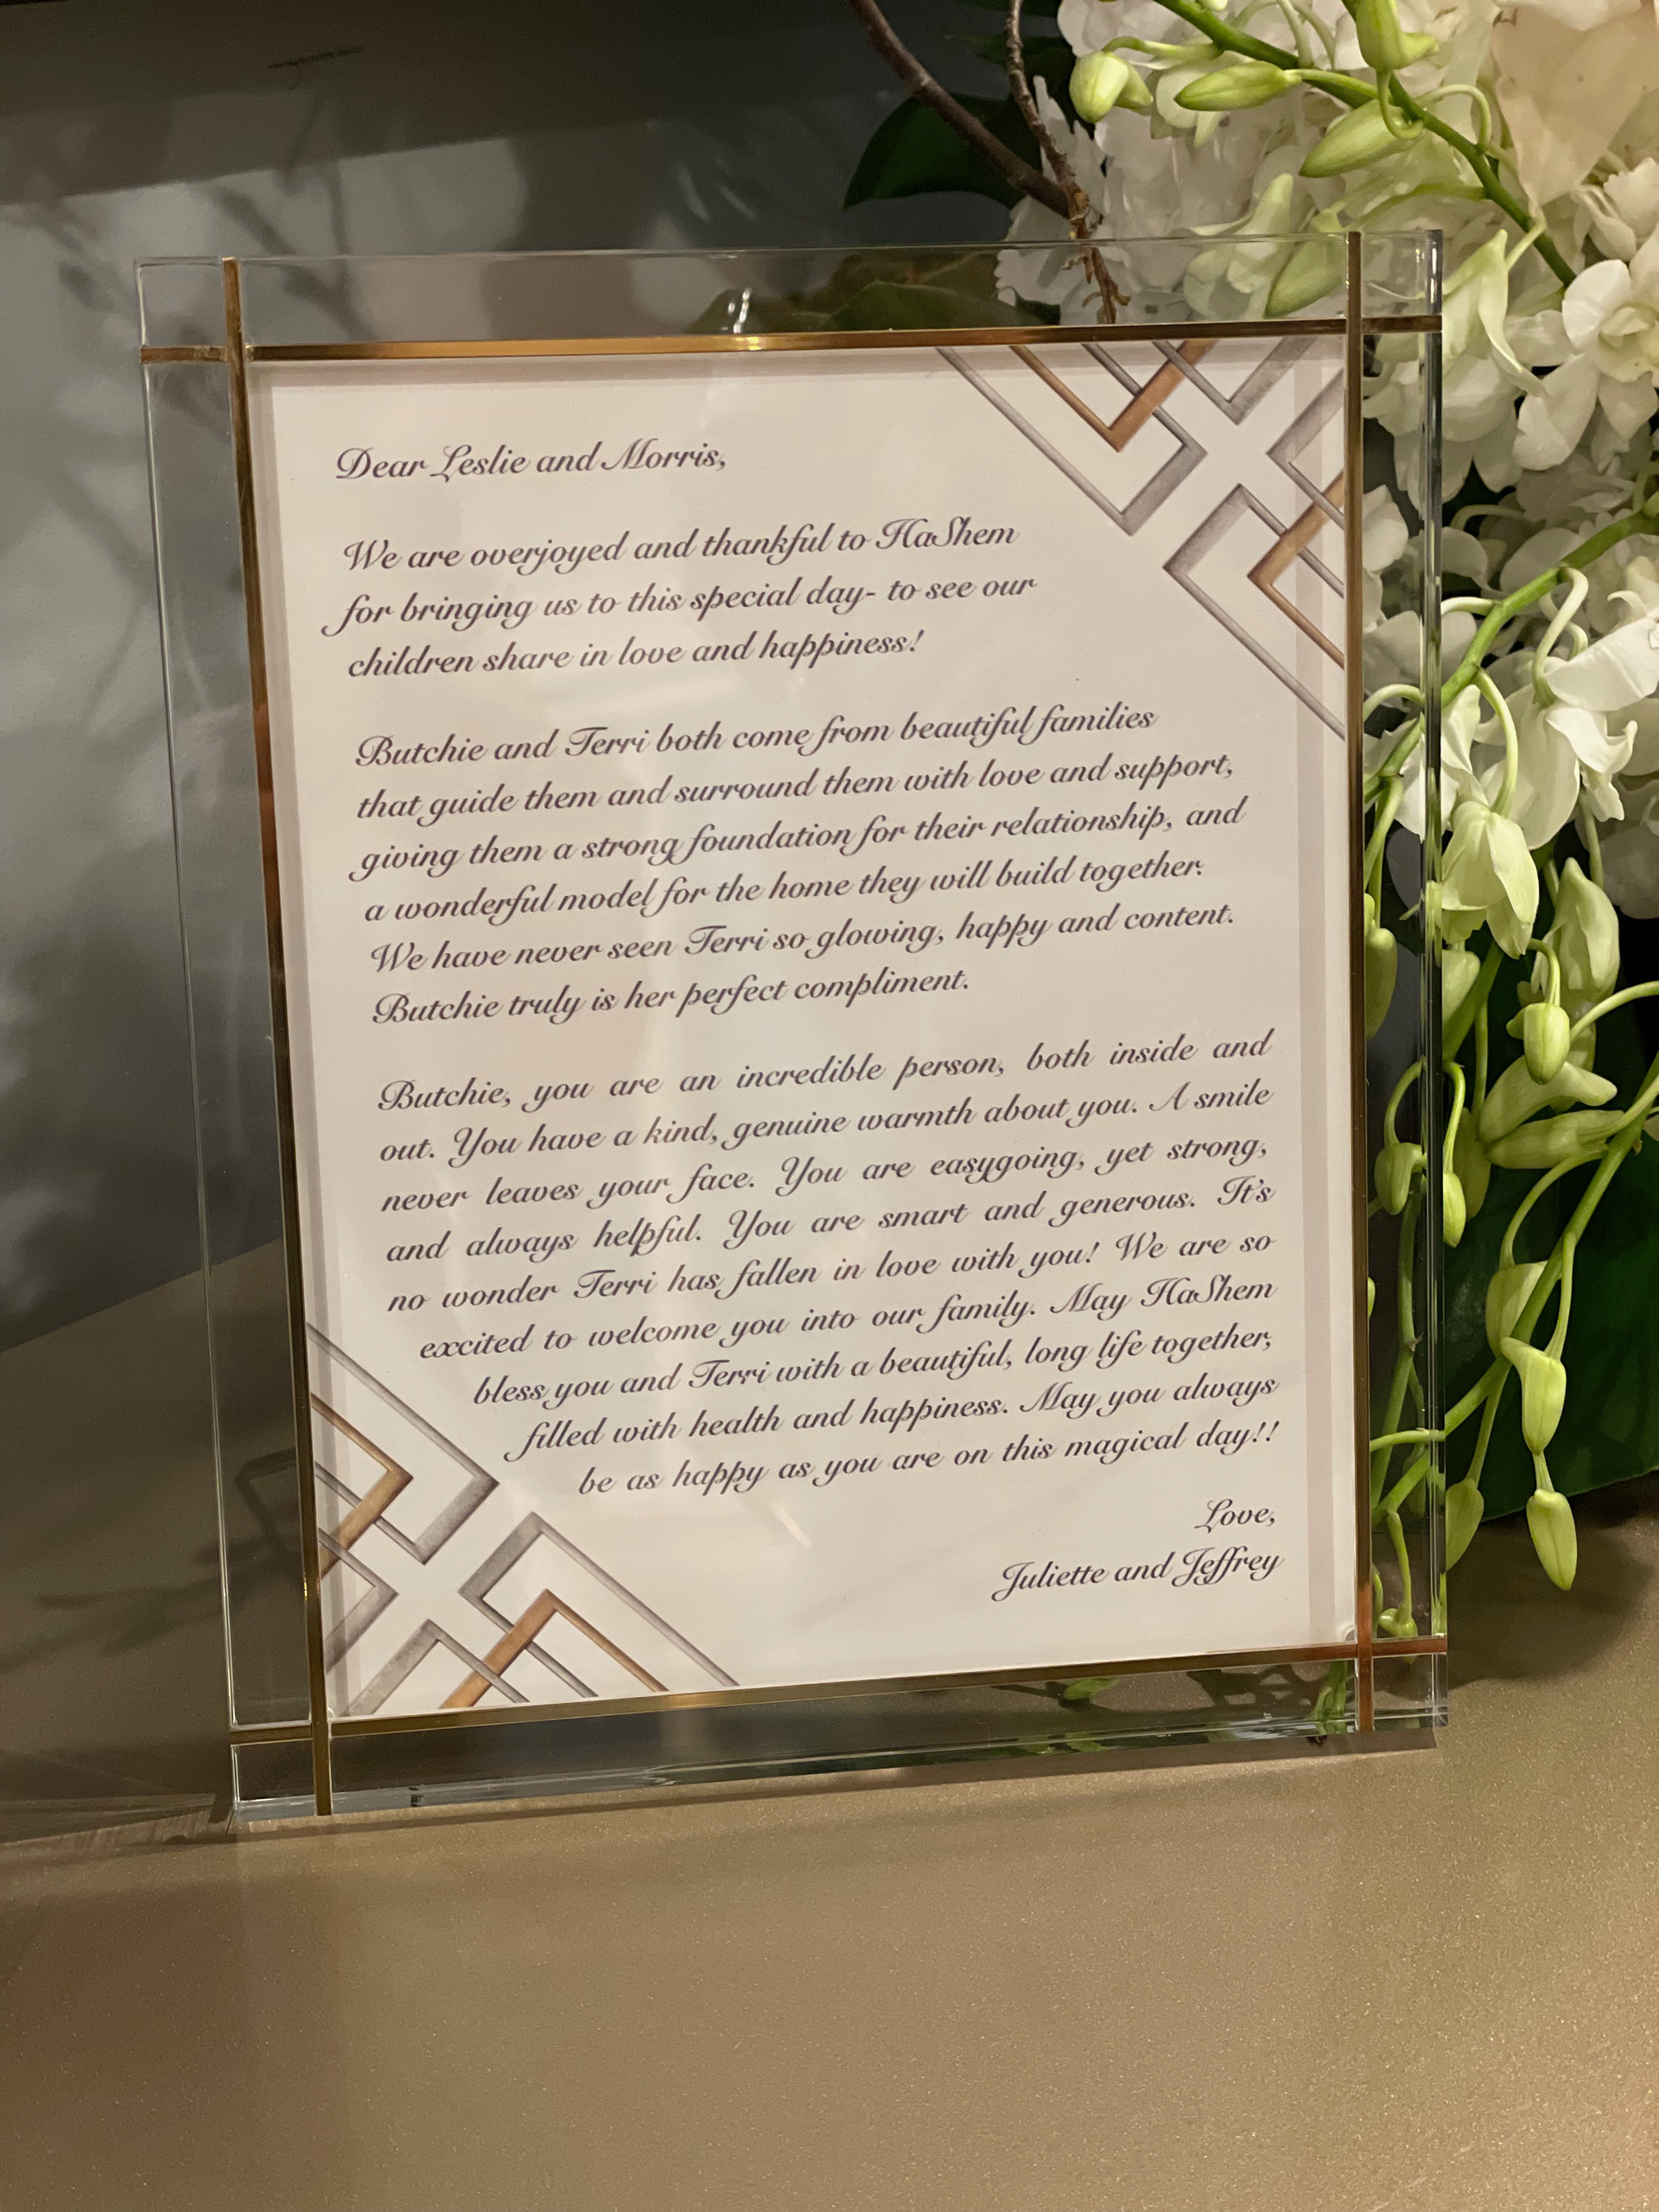 Dear Leslie and Morris,
We are overjoyed and thankful to HaShem
for bringing us to this special day- to see our
children share in love and happiness!
Butchie and Terri both come from beautiful families
that guide them and surround them with love and support,
giving them a strong foundation for their relationship, and
a wonderful model for the home they will build together.
We have never seen Terri so glowing, happy and content.
Butchie truly is her perfect compliment.
Butchie, you are an incredible person, both inside and
out. You have a kind, genuine warmth about you. A smile
never leaves your face. You are easygoing, yet strong,
and always helpful. You are smart and generous. It's
no wonder Terri has fallen in love with you! We are so
excited to welcome you into our family. May HaShem
bless you and Terri with a beautiful, long life together,
filled with health and happiness. May you always
be as happy as you are on this magical day!!
Love,
Juliette and Jeffrey